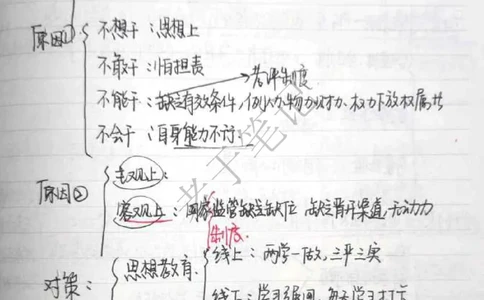 原因①
不想干：思想上
不敢干：怕担责
考评制度
不能干：缺乏有效条件，例人力物力财力、权力下放权属共
不会干：自身能力不行：
原因②
主观上：
客观上：国家监管缺乏缺位 缺乏晋升渠道，无动力
制度
对策：
思想教育
线上：两学一做，三严三实
线下：学习强国，每天学习打卡
老于笔记